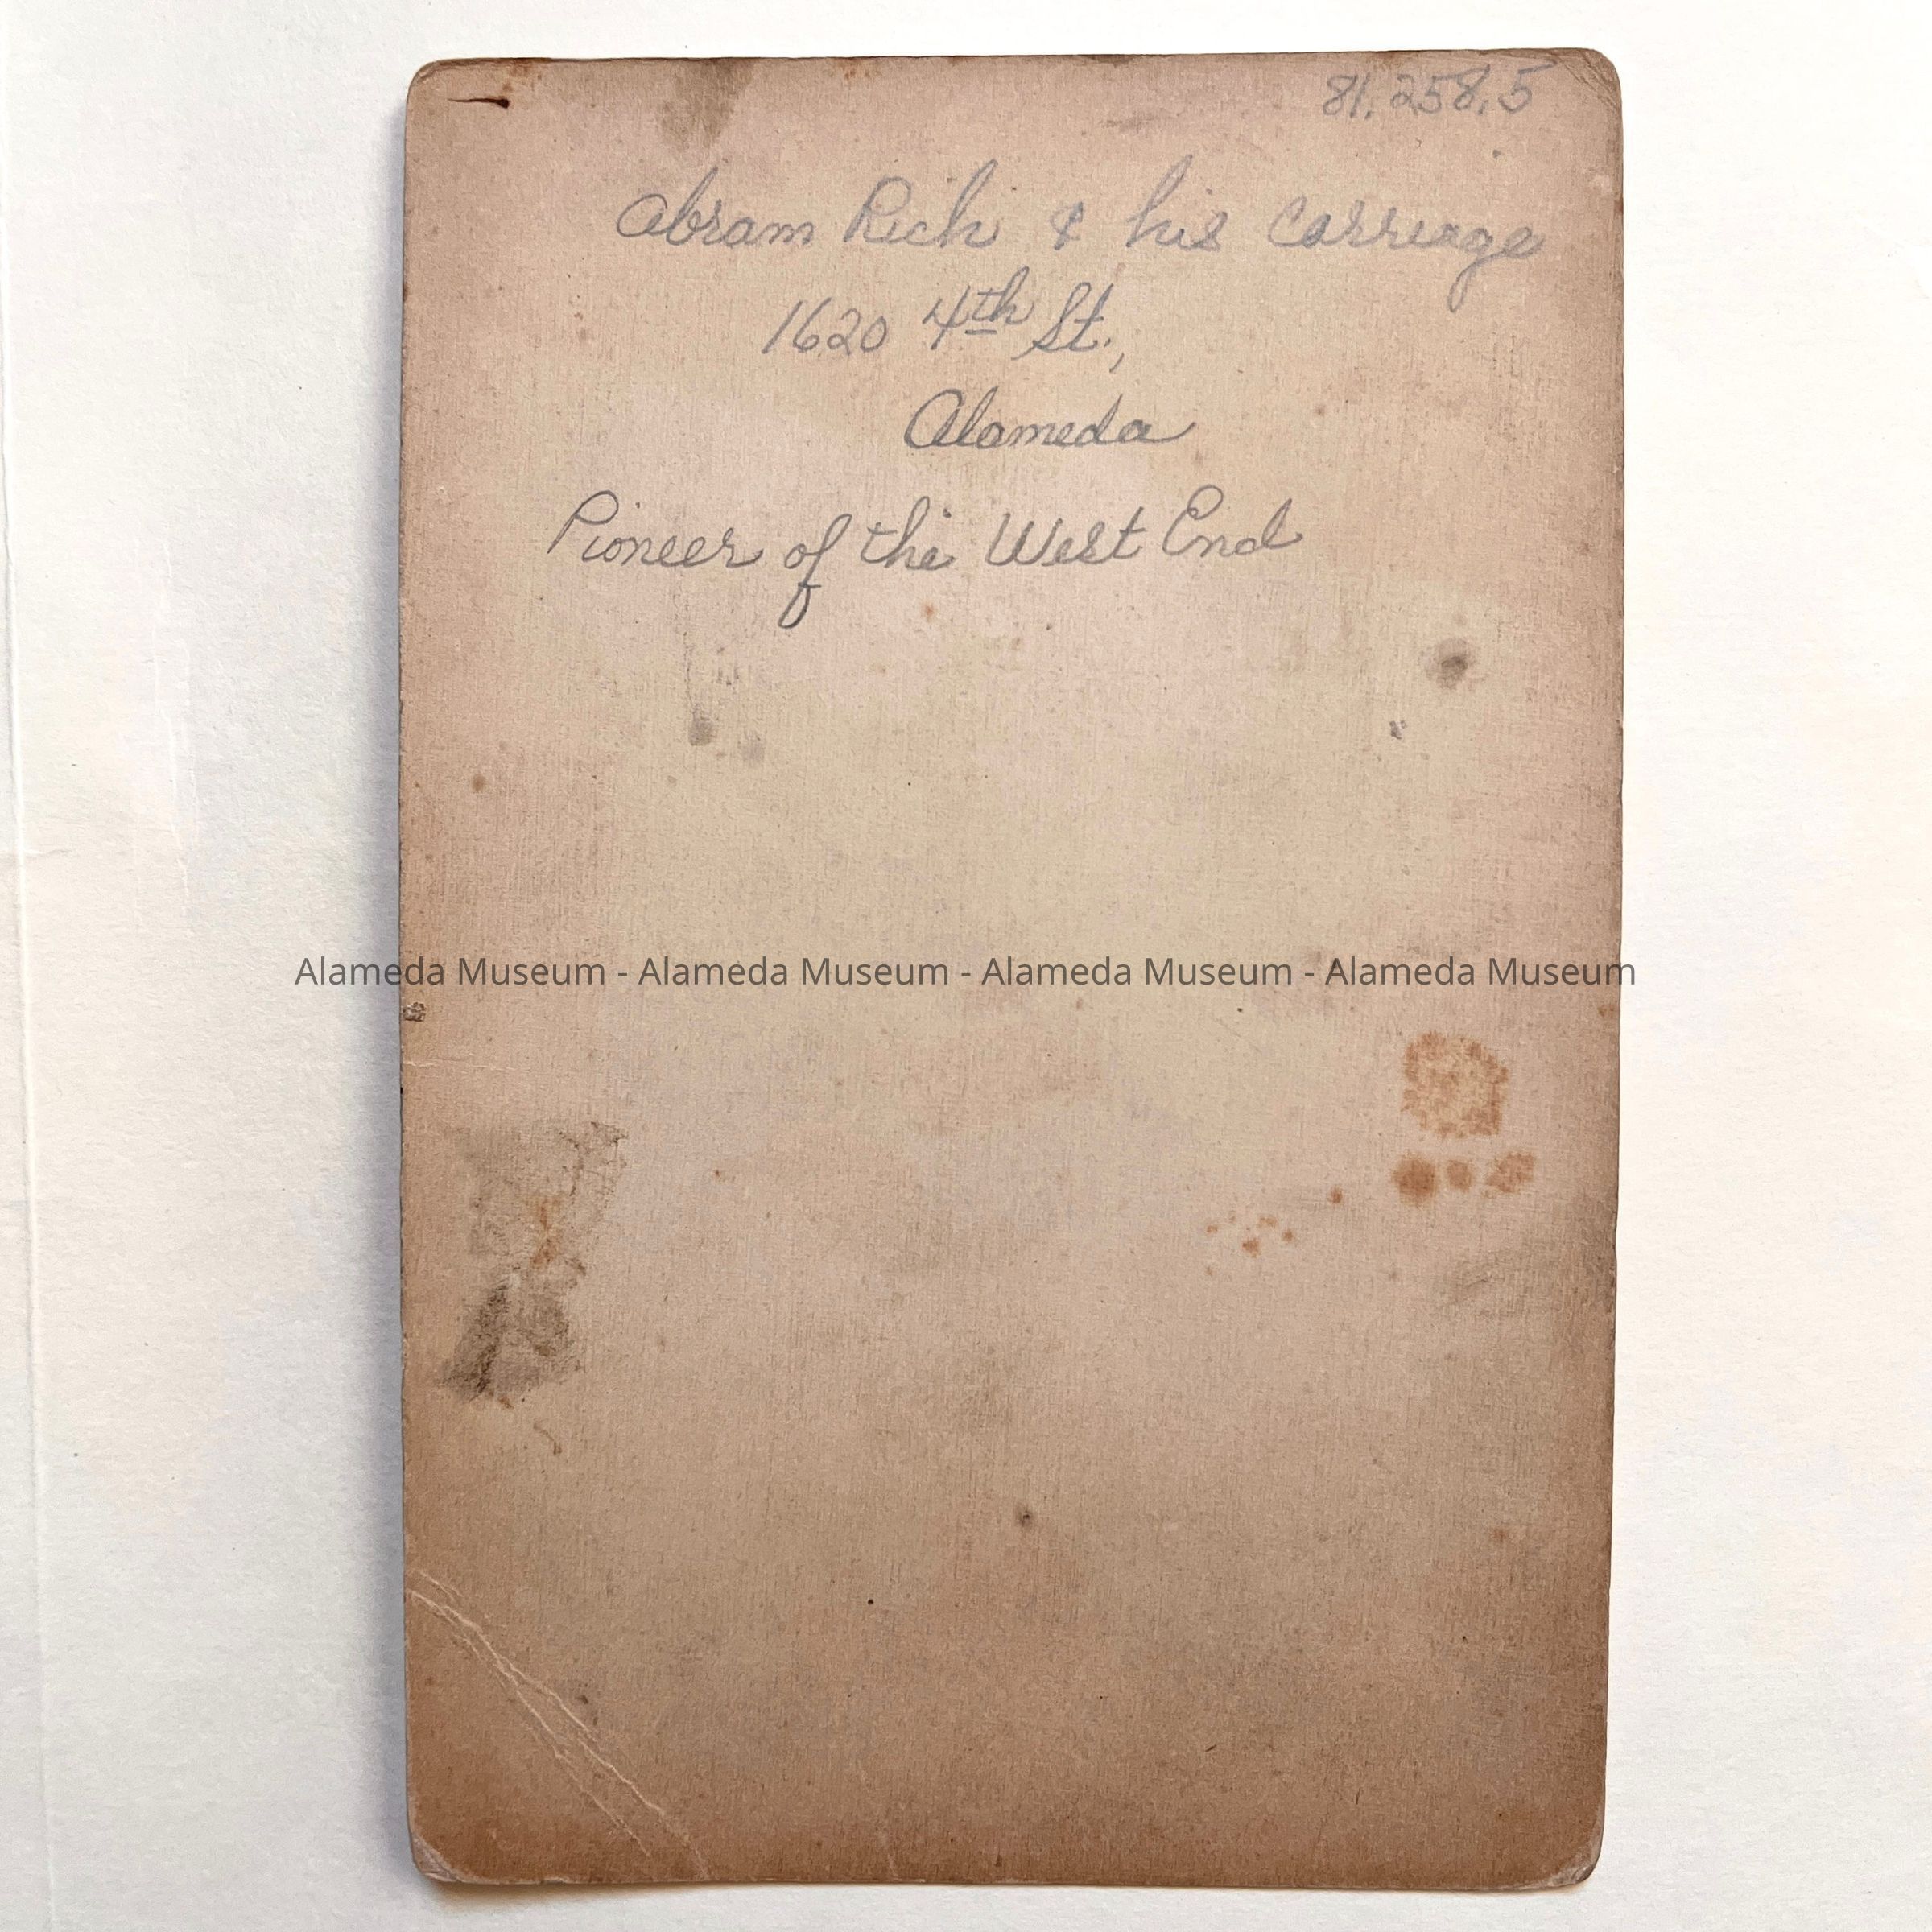 81.258.5
Abram Rich & his Carriage
1620 4th St.,
Alameda
Pioneer of the West End
Alameda Museum - Alameda Museum - Alameda Museum - Alameda Museum